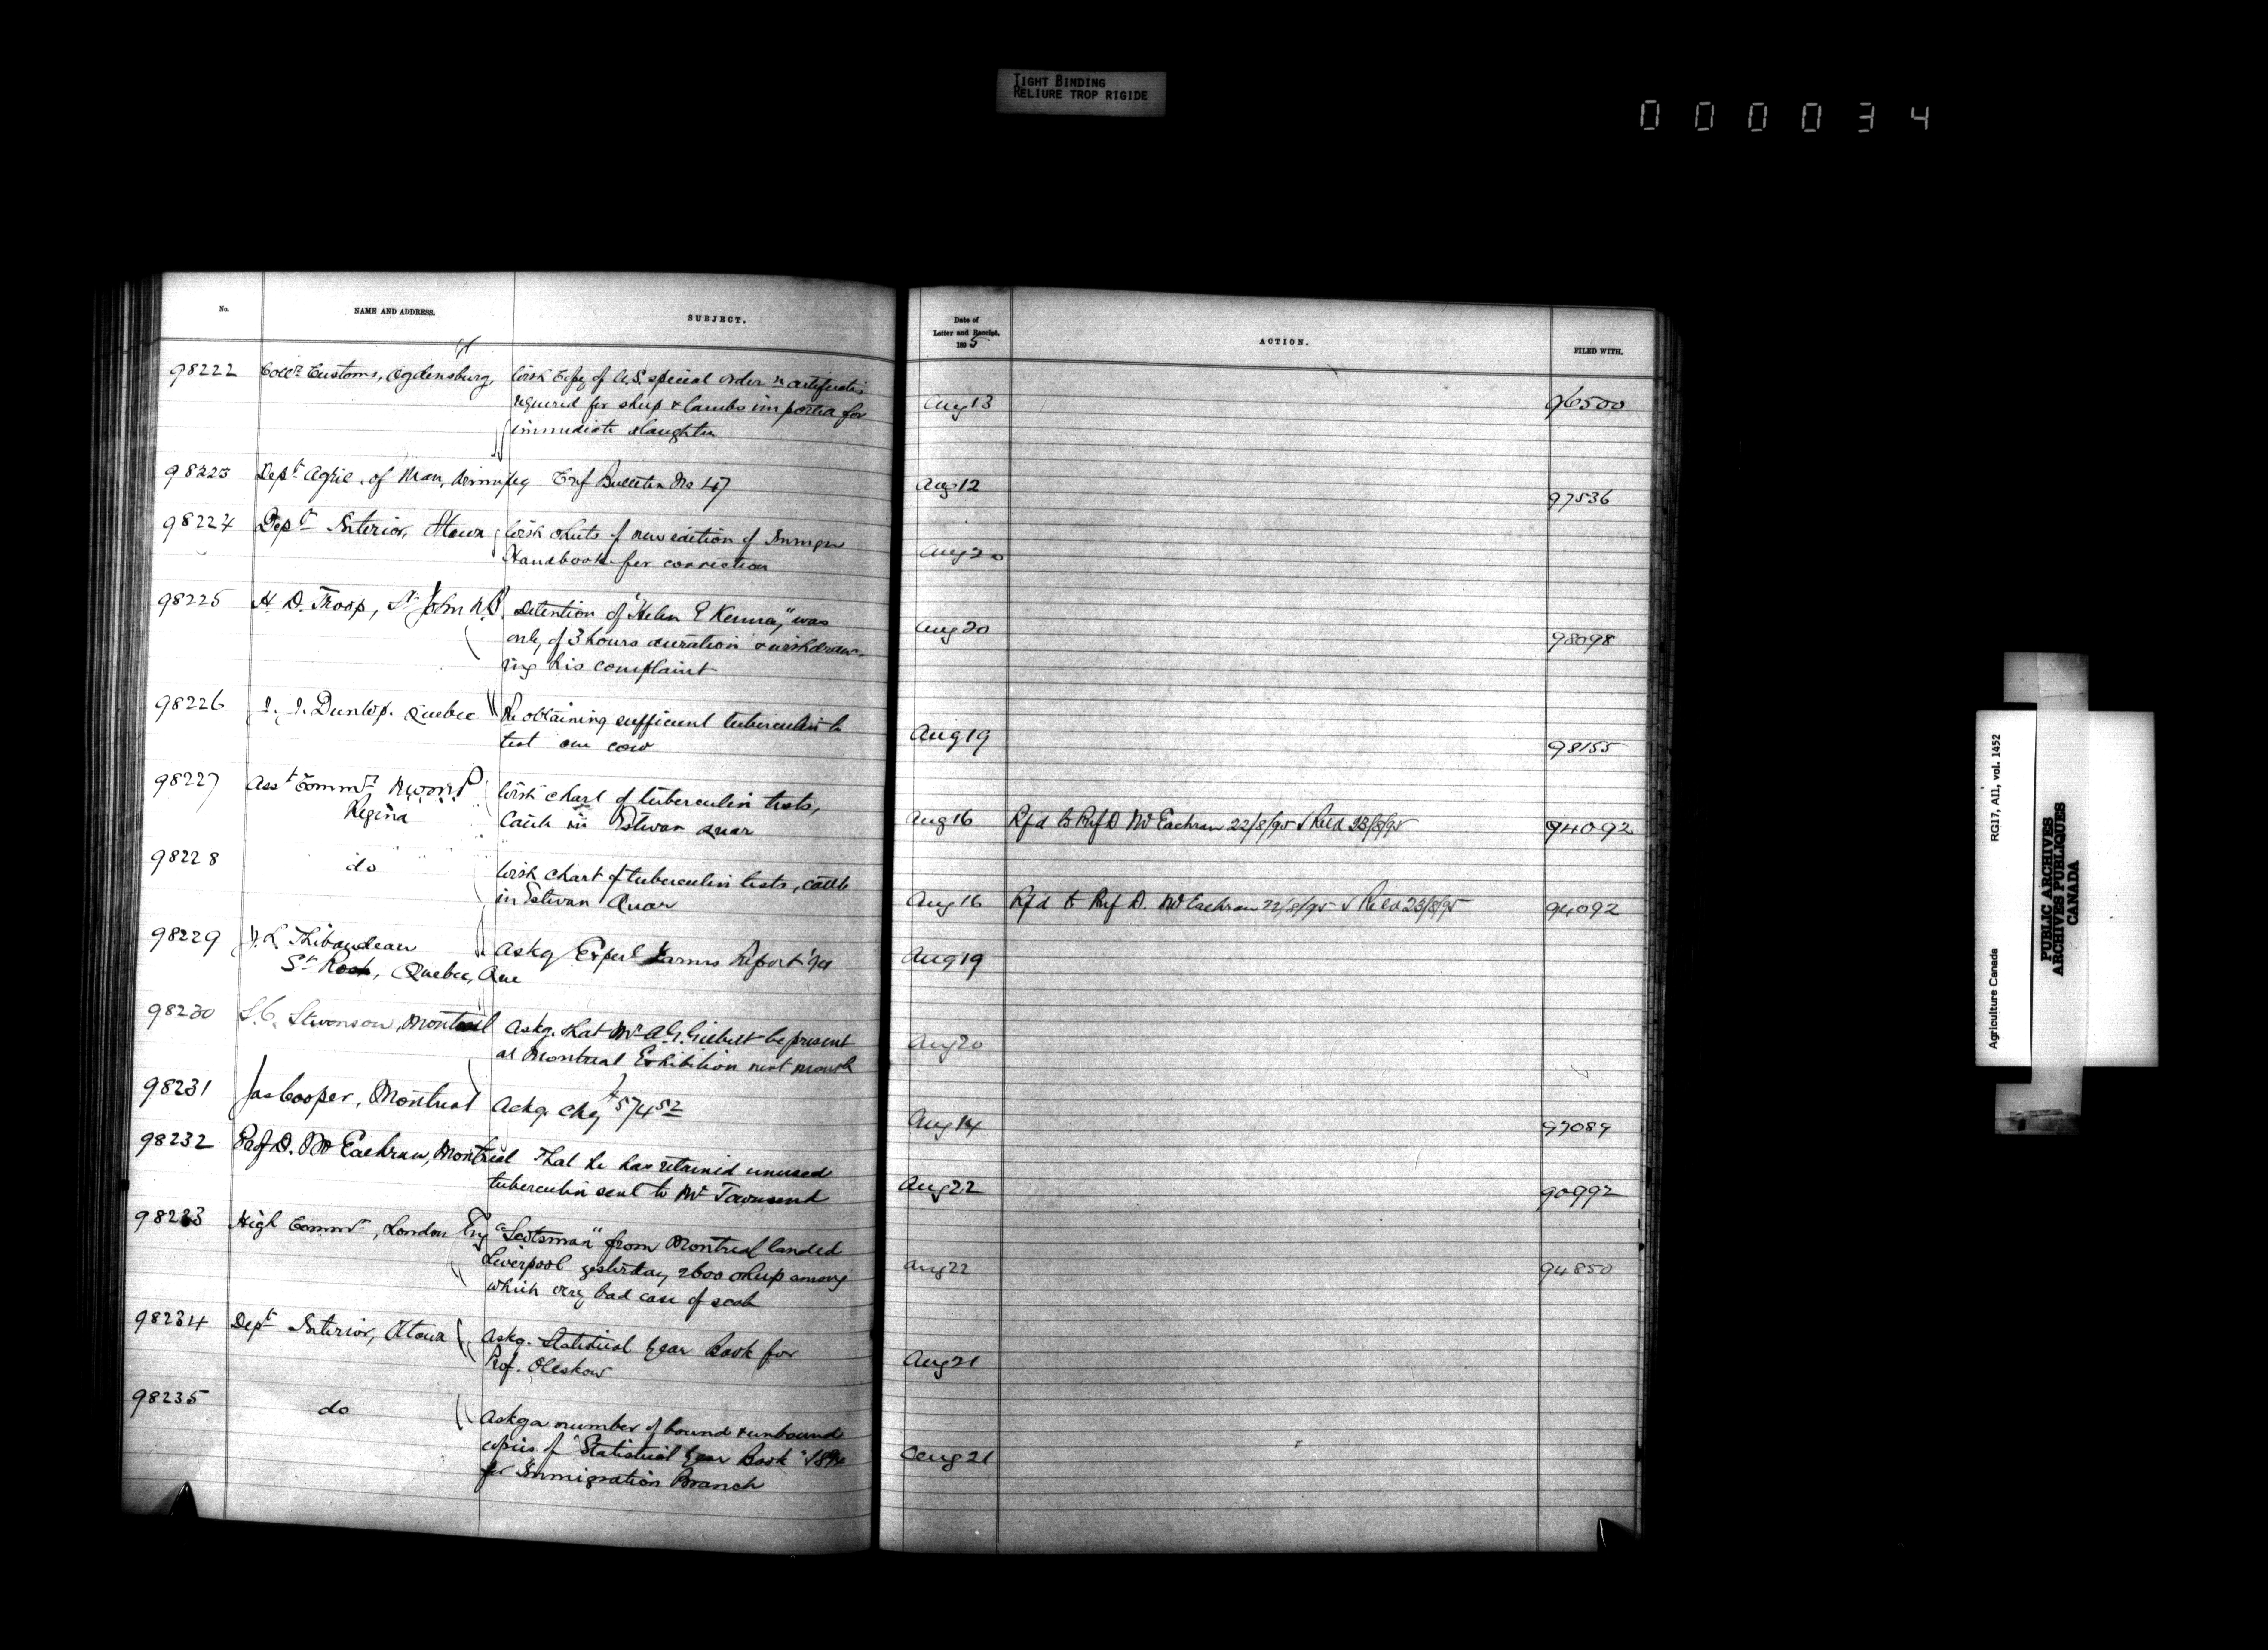 TIGHT BINDING
RELIURE TROP RIGIDE
000034
No.
NAME AND ADDRESS.
SUBJECT.
Date of
Letter and Receipt,
1895
ACTION.
FILED WITH.
98222 Collr Customs, Ogdensburg, With Copy of U.S. special order re certificates
required for sheep & lambs imported for
immediate slaughter
Aug 13 96500
98223 Dept Agric. of Man, Winnipeg Crop Bulletin No 47
Aug 12 97536
98224 Dept Interior, Ottawa With sheets of new edition of Immgn
Handbook for correction
Aug 20
98225 H. D. Troop, St John N.B. Detention of "Helen E Kenna," was
only of 3 hours duration & withdraw-
ing his complaint
Aug 20 98098
98226 Dunlop. Quebec Re obtaining sufficient tuberculin to
test one cow
Aug 19 98155
98227 Asst Commr N.W.M.P
Regina
With chart of tuberculin tests,
Cattle in Estevan Quar
Aug 16 Rfd to Prof D McEachran 22/8/95 & Retd 23/8/95 94092
98228 do With chart of tuberculin tests, cattle
in Estevan Quar
Aug 16 Rfd to Prof D. McEachran 22/8/95 & Retd 23/8/95 94092
98229 J. L. Thibaudeau
St Roch, Quebec, Que
Askg Experl Farms Report '94
Aug 19
98230 S.C. Stevenson, Montreal Askg. that Mr A.G. Gilbert be present
at Montreal Exhibition next month
Aug 20
98231 Jas Cooper, Montreal Ackg. chq $574 52
Aug 14 97089
98232 Prof D. McEachran, Montreal That he has retained unused
tuberculin sent to Mr Townsend
Aug 22 90992
98233 High Commr, London Eng "Scotsman" from Montreal landed
Liverpool yesterday 2600 sheep among
which very bad case of scab
Aug 22 94850
98234 Dept Interior, Ottawa Askg. Statistical Year Book for
Prof. Oleskow
Aug 21
98235 do Askg a number of bound & unbound
copies of "Statistical Year Book" 1894
for Immigration Branch
Aug 21
Agriculture Canada RG17, AII, vol. 1452
PUBLIC ARCHIVES
ARCHIVES PUBLIQUES
CANADA